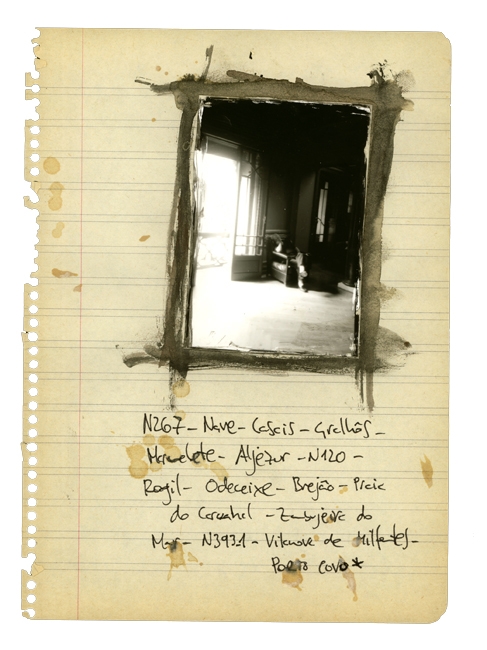 N267 - Nave - Casais - Gralhos -
Marmelete - Aljezur - N120 -
Rogil - Odeceixe - Brejão - Praia
do Carvalhal - Zambujeira do
Mar - N393.1 - Vilanova de Milfontes -
Porto Covo*